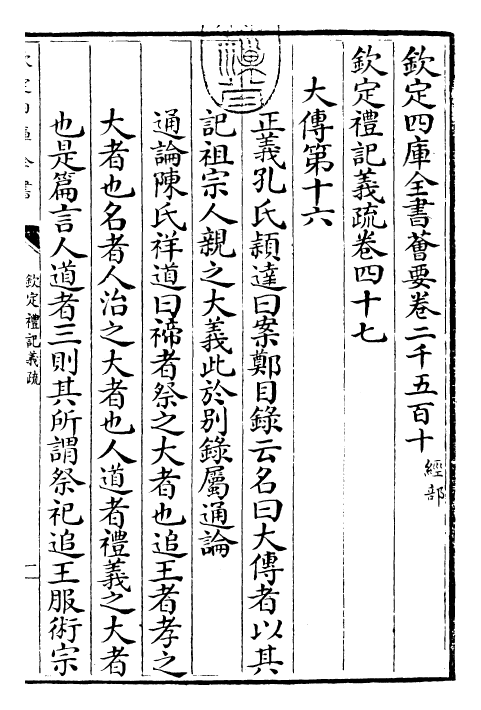 欽定四庫全書薈要卷二千五百十經部
欽定禮記義疏卷四十七
大傳第十六
正義孔氏穎達曰案鄭目錄云名曰大傳者以其
記祖宗人親之大義此於別錄屬通論
通論陳氏祥道曰禘者祭之大者也追王者孝之
大者也名者人治之大者也人道者禮義之大者
也是篇言人道者三則其所謂祭祀追王服術宗
欽定禮記義疏